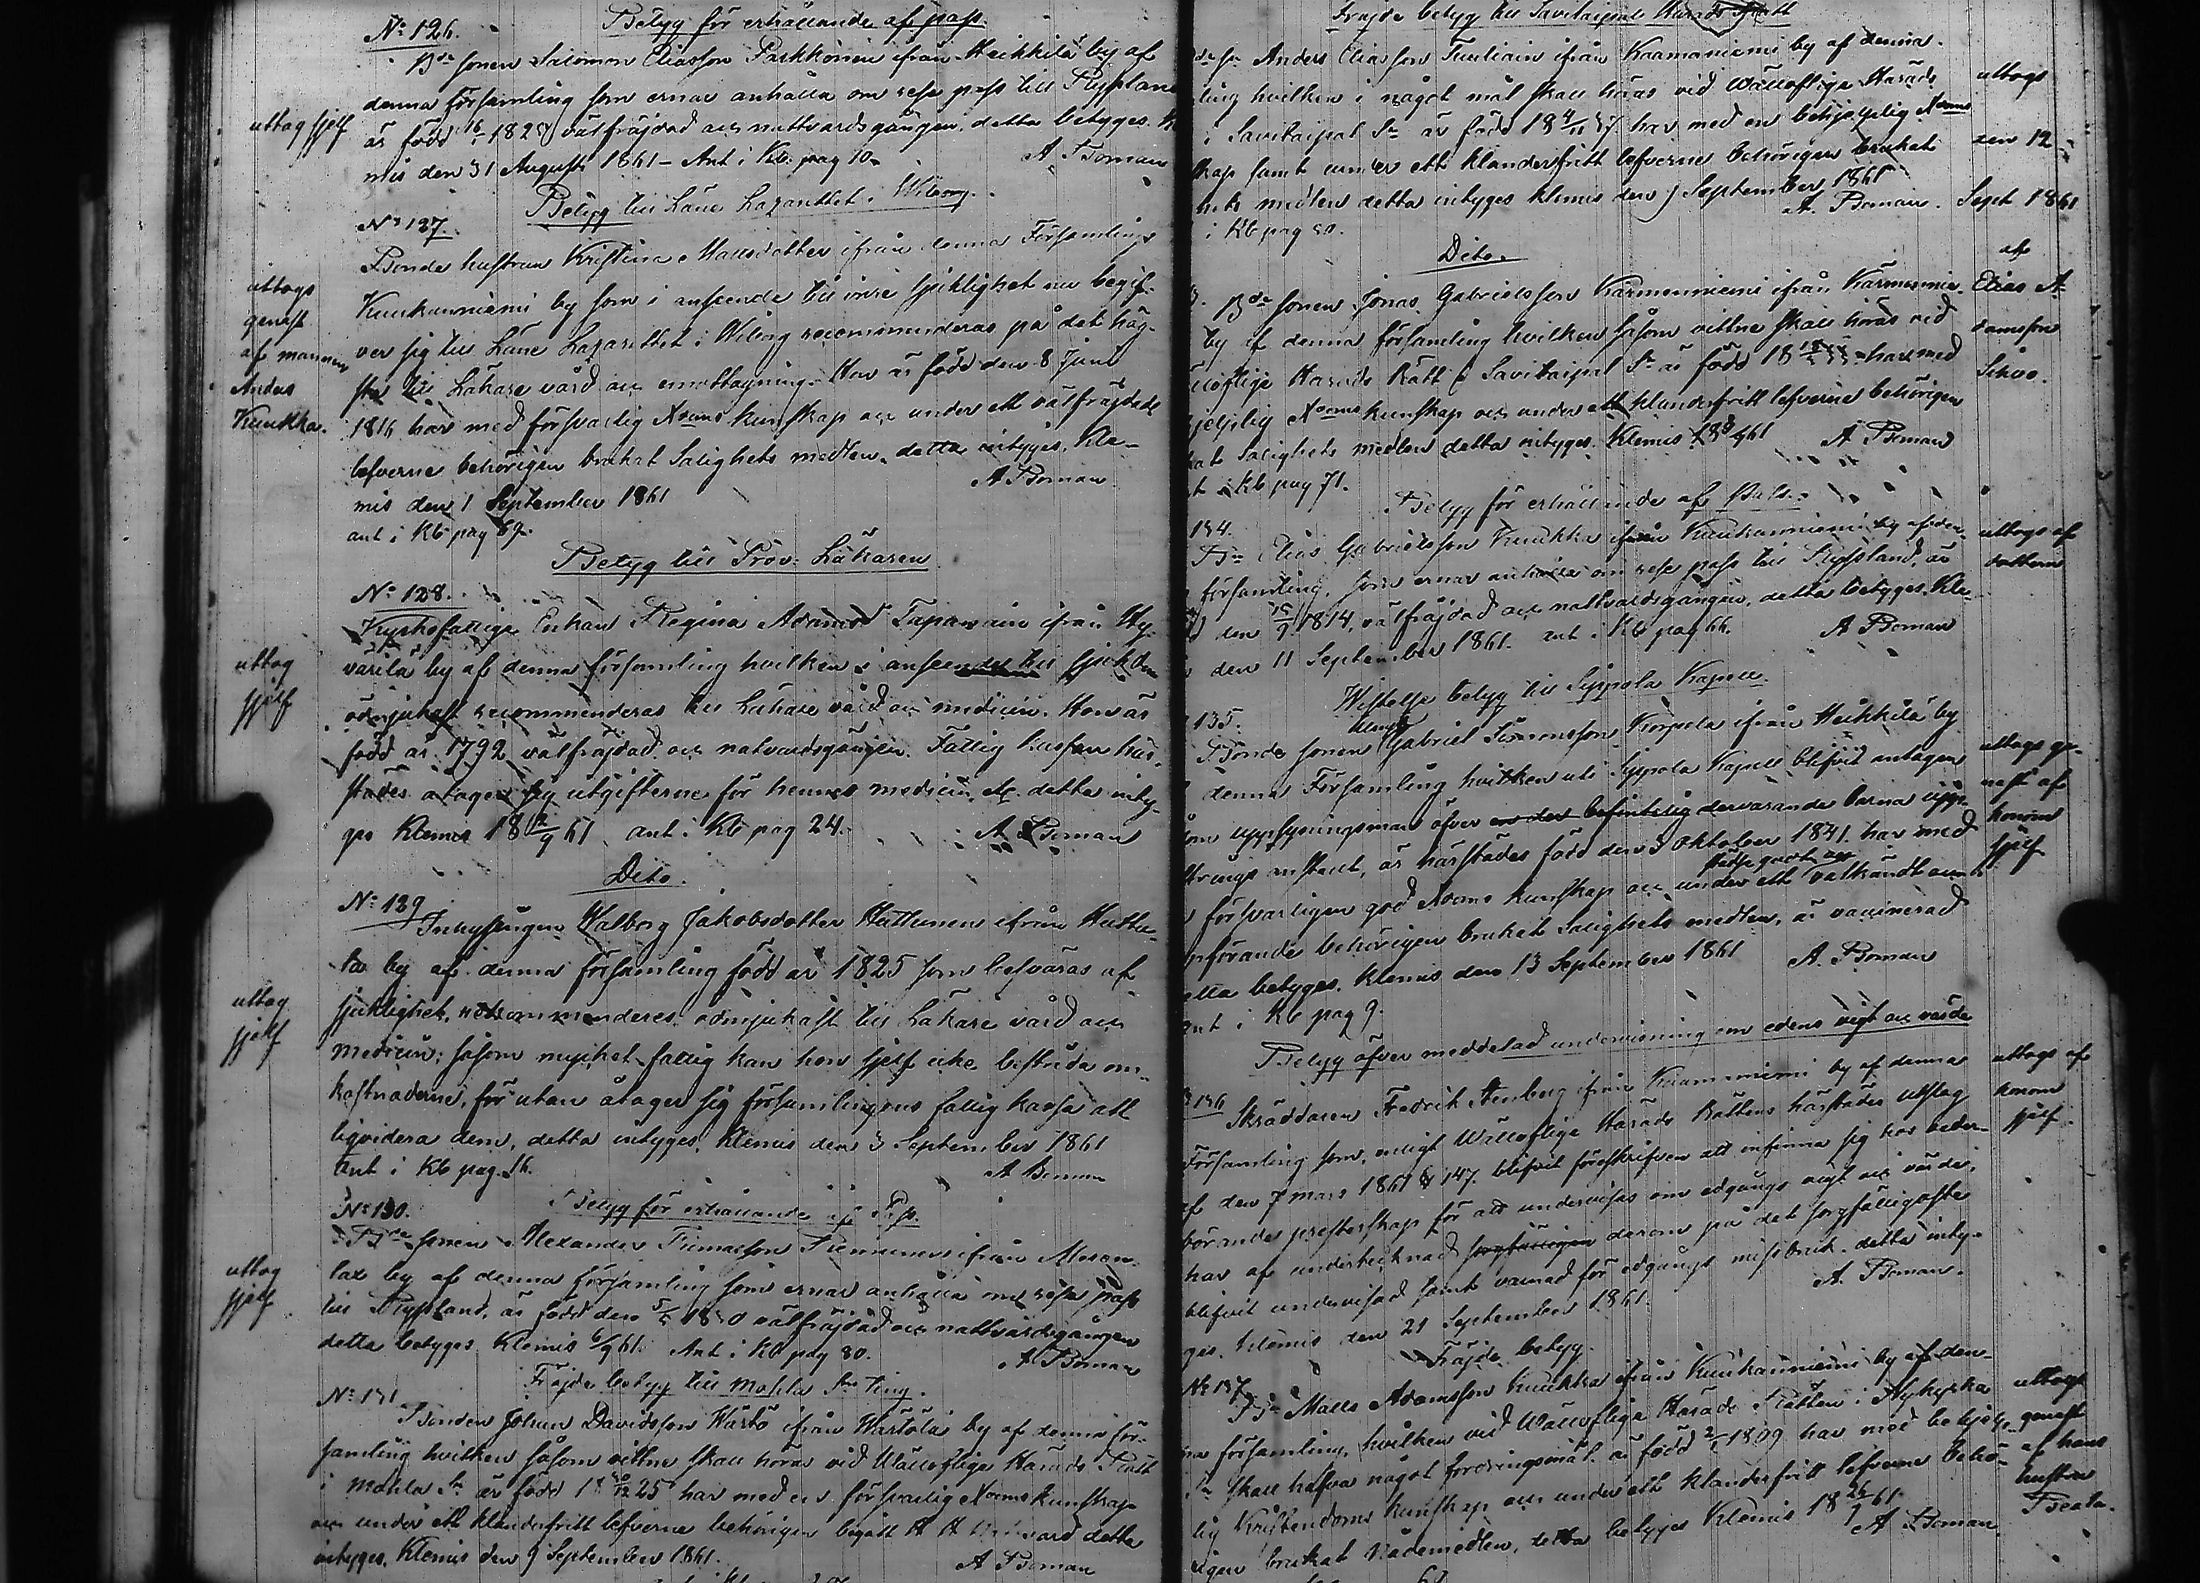 Betyg för erhållande af pass.
No 126.
Bde sonen Salomon Eliasson Parkkonen ifrån Heikkilä by af
denna församling som ernar anhålla om rese pass till Ryssland
uttog sjelf
är född 182 välfräjdad och nattvardsgången, detta betyges. Kle
mis den 31 Augusti 1861 - Ant i Kb. pag 10.
A Boman
Betyg till Läne Lazarettet i Wiborg.
No 127.
Bonde hustrun Kristina Mattsdotter ifrån denna Församlings
Kuukanniemi by som i anseende till inre sjuklighet nu begif-
uttogs
genast
af mannen
Anders
Kuukka.
ver sig till Läne Lazarettet i Wiborg recommenderas på det hög-
sta till Läkare vård och emottagning. Hon är född den 8 Juni
1816 har med försvarlig Xdoms kunskap och under ett välfräjdadt
lefverne behörigen brukat Salighets medlen, detta intyges. Kle-
mis den 1 September 1861
A Boman
ant i Kb pag 89.
Betyg till Prov: Läkaren
No 128.
Kyrkofattiga Enkan Regina Adamsd Tapanain ifrån Hy-
uttog
sjelf
varilä by af denna församling hvilken i anseende till sjukdom
ödmjukast recommenderas till Läkare vård och medicin. Hon är
född år 1792 välfräjdad och natvardsgången. Fattig kassan här-
städes åtager sig utgifterne för hennes medicin etc. detta inty-
ges Klemis 18 2/9 61 ant i Kb pag 24.
A Boman
Dito.
No 129
Inhysingen Walborg Jakobsdotter Huttunen ifrån Huttu-
la by af denna församling född år 1825 som besväras af
uttog
sjelf
sjuklighet, recommenderes ödmjukast till Läkare vård och
medicin; såsom mycket fattig kan hon sjelf icke bestrida om-
kostnaderne, för utan åtager sig församlingens fattig kassa att
liqvidera dem, detta intyges. Klemis den 3 September 1861
Ant i Kb pag. 16.
A Boman
No 130.
Betyg för erhållande af Pass.
Bde sonen Alexander Tumasson Pennanen ifrån
uttog
sjelf
lax by af denna församling som ernar anhålla om rese pass
till Ryssland, är född den välfräjdad och nattvardsgången
detta betyges Klemis 6/9 61. Ant i Kb pag 80.
A Boman
Fräjde betyg till Mohla Sns Ting.
No 131
Bonden Johan Davidsson Härkö ifrån by af denna för-
samling hvilken såsom vittne skall höras vid Wällofliga Härads Rätt
i Mohla Sn är född 18 25 har med en försvarlig Xdoms kunskap
och under ett klanderfritt lefverne behörigen begått H. H. Nattvard detta
intyges. Klemis den 9 September 1861.
A Boman
Fräjde betyg till Savitaipale Härads Rätt
Anders Eliasson Tuuliain ifrån Kaamaniemi by af denna
ling hvilken i något mål skall höras vid Wällofliga Härads
i Savitaipal Sn är född 18 har med en behjelplig Xdoms
skap samt under ett klanderfritt lefverne behörigen brukat
hets medlen detta intyges Klemis den 7 September 1861
A. Boman.
i Kb pag 50.
uttogs
den 12
Sept 1861
af
Elias A-
damsson
Sihvo.
Dito.
Bde sonen Jonas Gabrielsson Kärmenniemi ifrån Kärmennie-
by af denna församling hvilken såsom vittne skall höras vid
ällofliga Härads Rätt i Savitaipal Sn är född 18 har med
jelplig Xdoms kunskap och under ett klanderfritt lefverne behörigen
kat Salighets medlen detta intyges. Klemis 18 8/9 61
A Boman
t i Kb pag 71.
Betyg för erhållande af Pass.
134.
Bn Elias Gabrielsson Kuukka ifrån Kuukanniemi by af den-
församling, som ernar anhålla om rese pass till Ryssland, är
den 1814, välfräjdad och nattvardsgången, detta betyges, Kle-
den 11 September 1861. ant i Kb pag 66.
A Boman
uttogs af
dottern
Wistelse betyg till Sippola Kapell.
135.
Bonde sonen Gabriel Simonsson Korpela ifrån Heikkilä by
denna Församling hvilken uti Sippola Kapell blifvit antagen
om uppsyningsman öfver en der befintelig dervarande barna upp-
strings anstalt, är härstädes född den 3 Oktober 1841. har med
försvarligen god Xdoms kunskap och under ett välkändt
nförande behörigen brukat Salighets medlen, är vaccinerad
etta betyges. Klemis den 13 September 1861
A. Boman
ant i Kb pag 9.
uttogs ge-
nast af
honom
sjelf
Betyg öfver meddelad undervisning om edens vigt och värde
136
Skräddaren Fredrik Stenberg ifrån Kaamaniemi by af denna
Församling som, enligt Wällofliga Härads Rättens härstädes utslag
af den 7 mars 1861 § 147. blifvit föreskrifven att infinna sig hos veder-
börande presterskap för att undervisas om edgångs vigt och värde,
har af undertecknad sorgfälligen derom på det sorgfälligaste
blifvit undervisad samt varnad för edgångs missbruk. detta inty-
ges. Klemis den 21 September 1861.
A. Boman.
uttogs af
honom
sjelf.
Fräjde betyg.
No 137
Bn Matts Adamsson Kuukka ifrån Kuukanniemi by af den-
na församling, hvilken vid Wällofliga Härads Rätten i Nykyrka
Sn skall hafva något fordringsmål är född 1809 har med behjelp-
lig Kristendoms kunskap och under ett klanderfritt lefverne behö-
rigen brukat Nådemedlen, detta betyges Klemis 18 26/9 61.
A Boman
uttogs
genast
af hans
hustru
Beata.